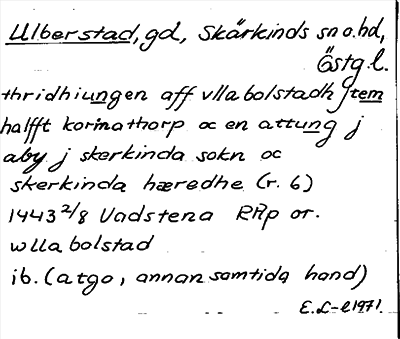 Ulberstad, gd, Skärkinds sn o. hd,
Östg. l.
thridhiungen aff vllabolstadh Jtem
halfft kormathorp oc en attung j
aby j skerkinda sokn oc
skerkinda hæredhe (r. 6)
1443 2/8 Vadstena RAp or.
wllabolstad
ib. (atgo, annan samtida hand)
E. L-l 1971.